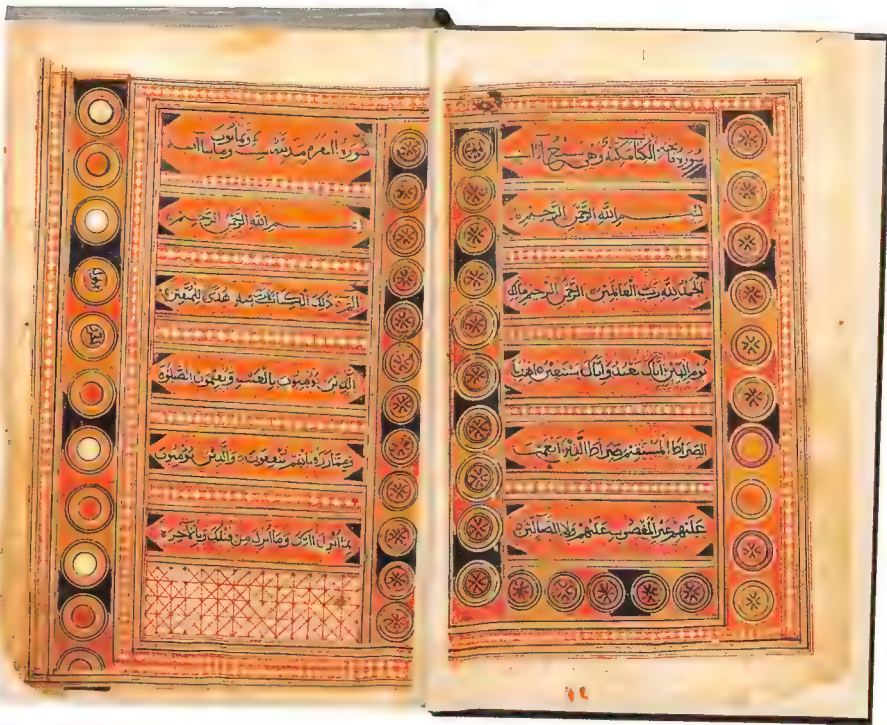 سورة فاتحة الكتاب مكية وهي سبع آيات
بسم الله الرحمن الرحيم
الحمد لله رب العالمين الرحمن الرحيم مالك
يوم الدين اياك نعبد واياك نستعين اهدنا
الصراط المستقيم صراط الذين انعمت
عليهم غير المغضوب عليهم ولا الضالين
سورة البقرة مدنية وهي مائتان وثمانون
بسم الله الرحمن الرحيم
الم ذلك الكتاب لا ريب فيه هدى للمتقين
الذين يؤمنون بالغيب ويقيمون الصلوة
ومما رزقناهم ينفقون والذين يؤمنون
بما انزل اليك وما انزل من قبلك وبالآخرة
١٩